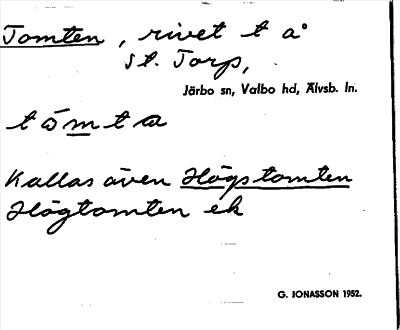 Tomten, rivet t a°
St. Torp,
Järbo sn, Valbo hd, Älvsb. ln.
t ò m t a
Kallas även Högstomten
Högtomten ek
G. JONASSON 1952.